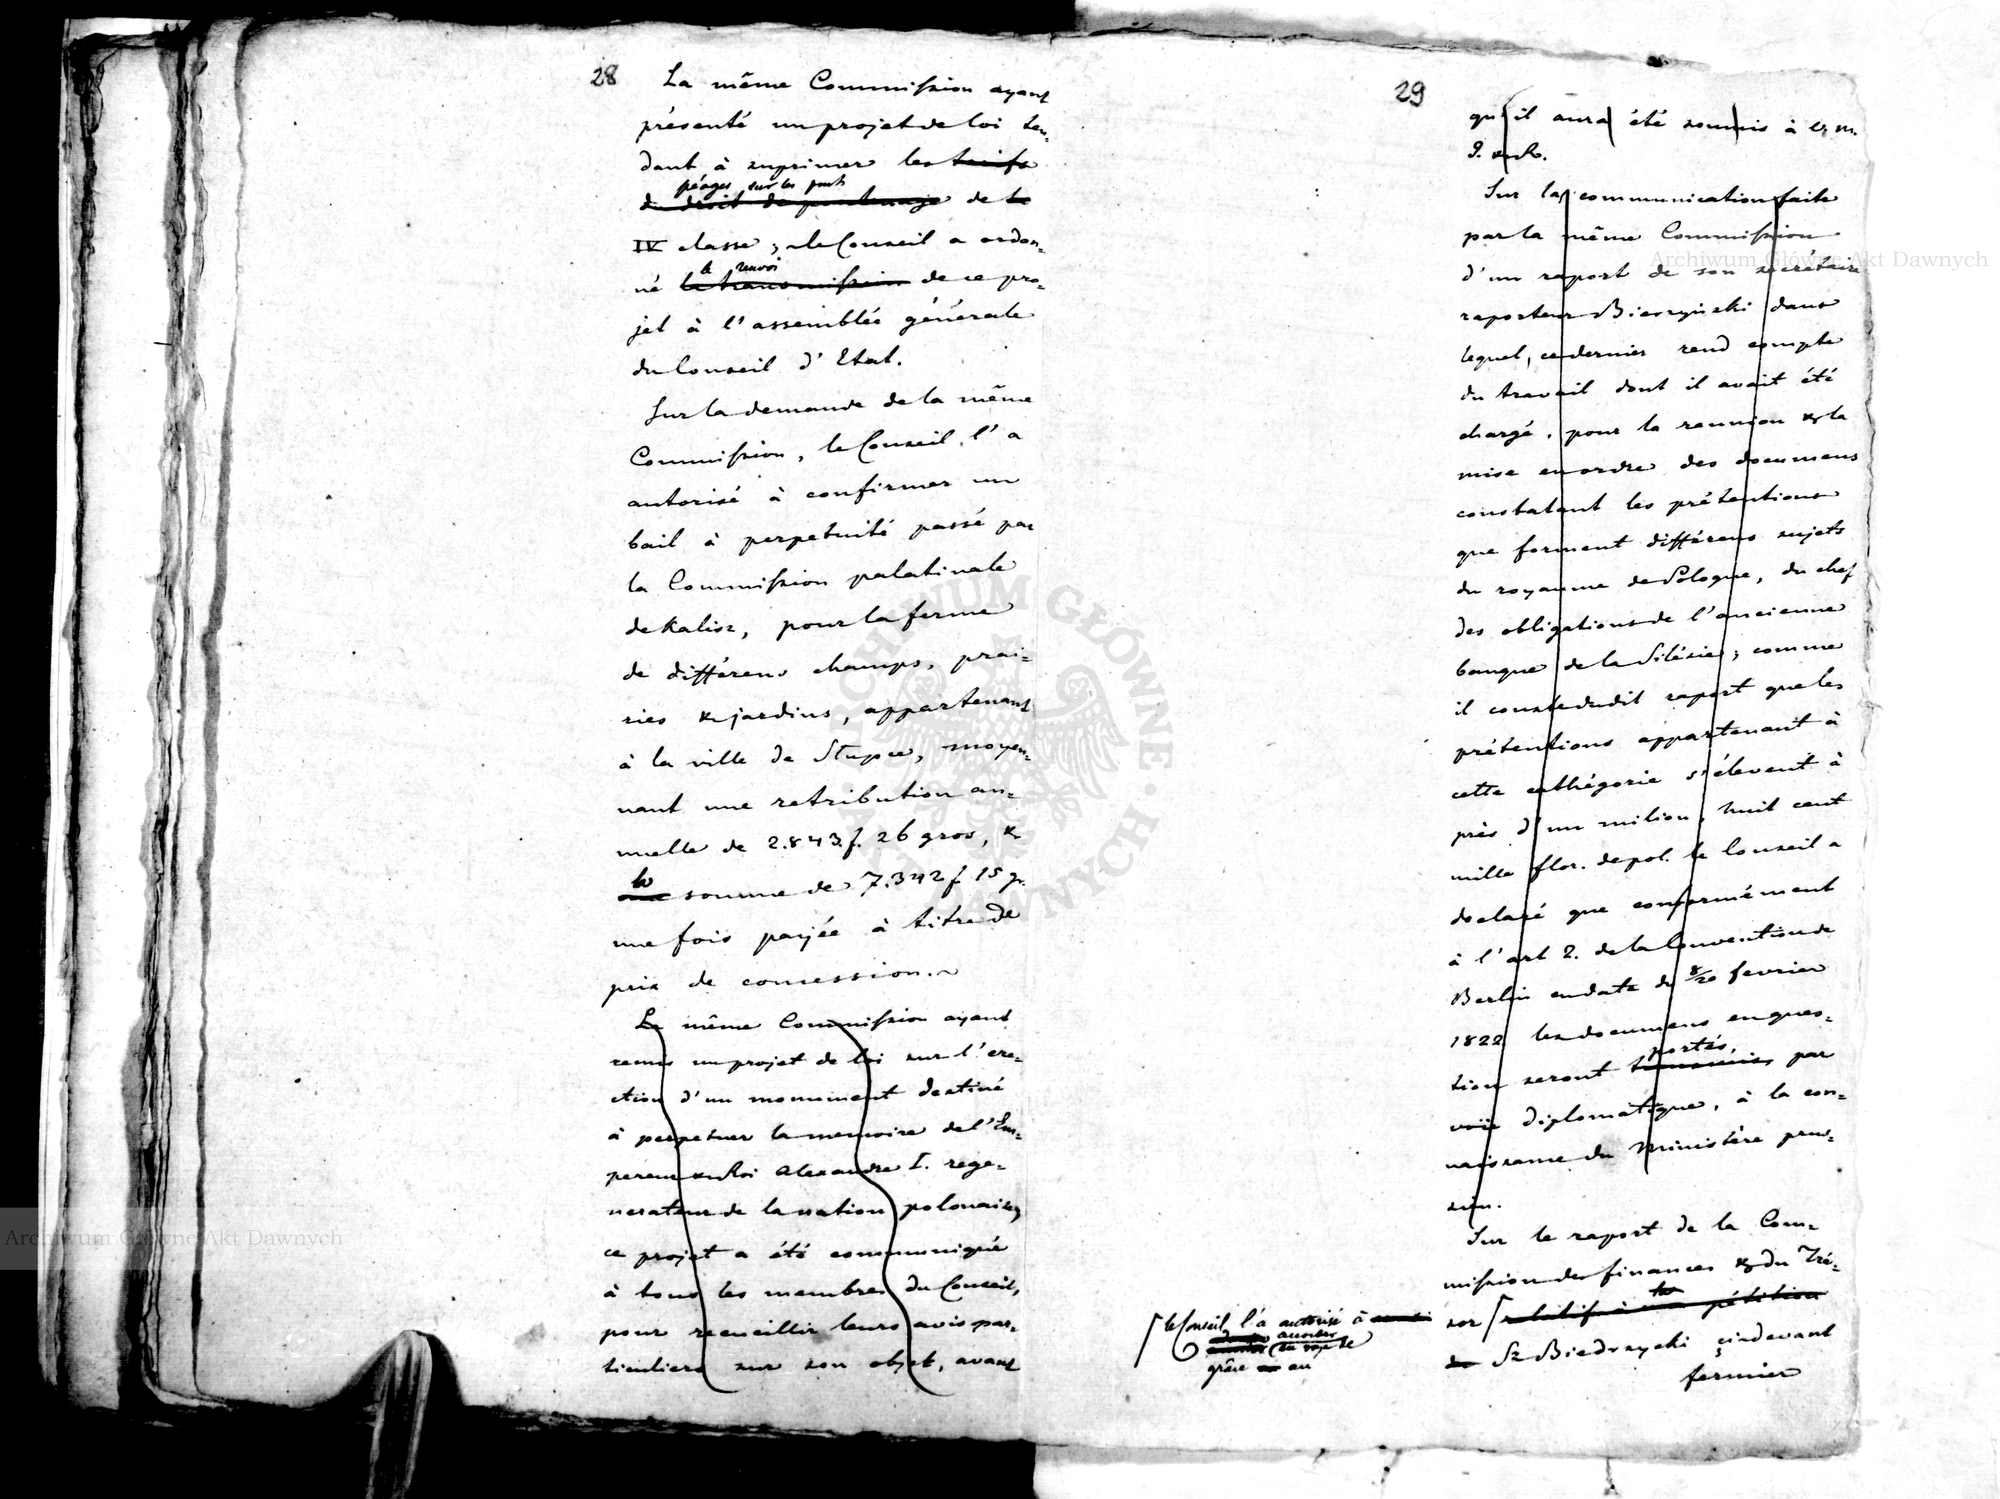 28
La même Commission ayant
présenté un projet de loi ten-
dant à suprimer les tarifs
péages sur les ponts
du droit de pontenage de la
IV classe; le Conseil a ordon-
le renvoi
né la transmission de ce pro-
jet à l'assemblée générale
du Conseil d'Etat.
Sur la demande de la même
Commission, le Conseil, l'a
autorisé à confirmer un
bail à perpetuité passé par
la Commission palatinale
de Kalisz, pour la ferme
de différens champs, prai-
ries & jardins, appartenant
à la ville de Stupce, moyen-
nant une retribution an-
nuelle de 2.843 f. 26 gros, &
la
une somme de 7.342 f 15 gr.
une fois payée à titre de
prix de concession.
La même Commission ayant
remis un projet de loi sur l'ere-
ction d'un monument destiné
à perpetuer la memoire de l'Em-
pereur & Roi Alexandre I. rege-
nerateur de la nation polonaise,
ce projet a été communiqué
à tous les membres du Conseil,
pour recueillir leurs avis par-
ticuliers sur son objet, avant
29
qu'il aura été soumis à S. M.
I. & R.
Sur la communication faite
par la même Commission
d'un raport de son secrétaire
raporteur Bieczyński dans
lequel, ce dernier rend compte
du travail dont il avait été
chargé, pour la reunion & la
mise en ordre des documens
constatant les prétentions
que forment différens sujets
du royaume de Pologne, du chef
des obligations de l'ancienne
banque de la Silésie; comme
il conste dudit raport que les
prétentions appartenant à
cette cathégorie s'élevent à
près d'un milion, huit cent
mille flor. de pol. le Conseil a
declaré que conformément
à l'art 2. de la Convention de
Berlin en date du 8/20 fevrier
1822 les documens en ques-
portés,
tion seront transmis, par
voie diplomatique, à la con-
naissance du Ministère prus-
sien.
Sur le raport de la Com-
mission des finances & du Tré-
sor relatif à la pétition
de Sr Biedrzycki ci devant
fermier
le Conseil l'a autorisé à
accorder
grâce au
Archiwum Główne Akt Dawnych
Archiwum Główne Akt Dawnych
ARCHIWUM GŁÓWNE · AKT DAWNYCH ·